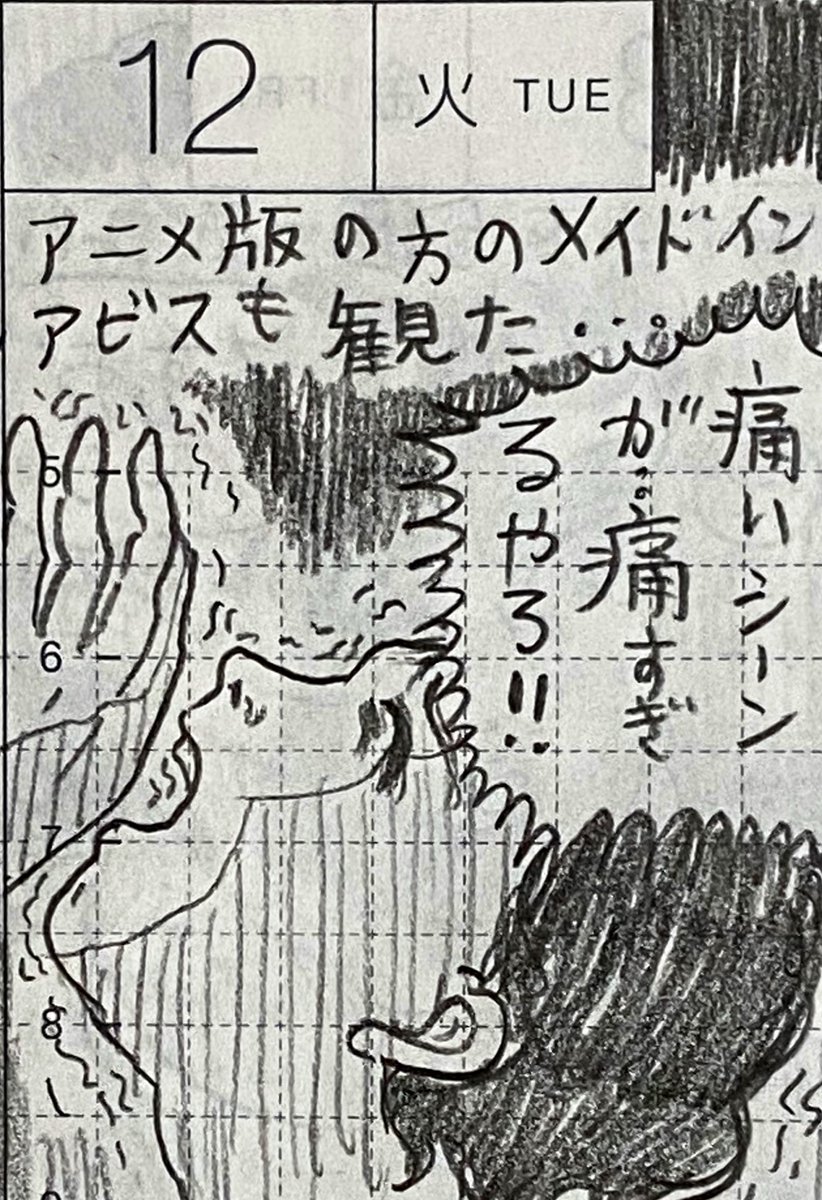 12
火 TUE
アニメ版の方のメイドイン
アビスも観た……
痛いシーン
が。痛すぎ
るやろ!!
5
6
7
8